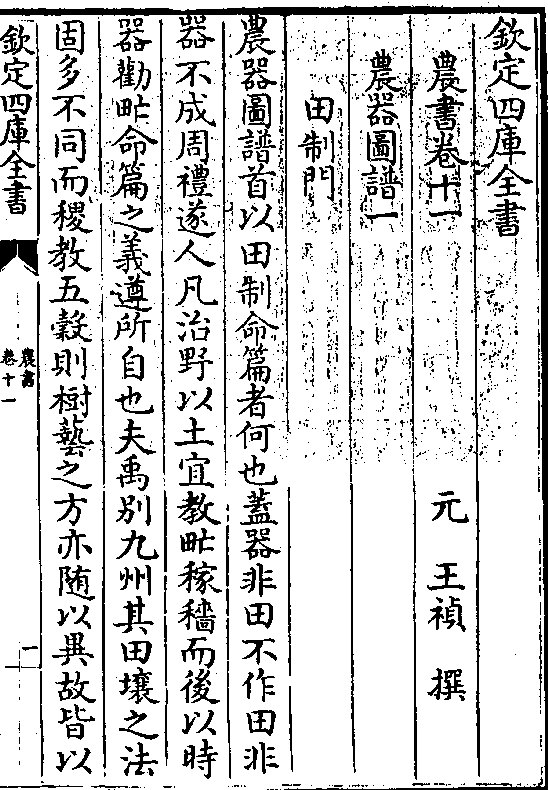 欽定四庫全書
農書卷十一
元 王禎 撰
農器圖譜一
田制門
農器圖譜首以田制命篇者何也蓋器非田不作田非
器不成周禮遂人凡治野以土宜教甿稼穡而後以時
器勸甿命篇之義遵所自也夫禹別九州其田壤之法
固多不同而稷教五穀則樹藝之方亦随以異故皆以
欽定四庫全書
農書
卷十一
一